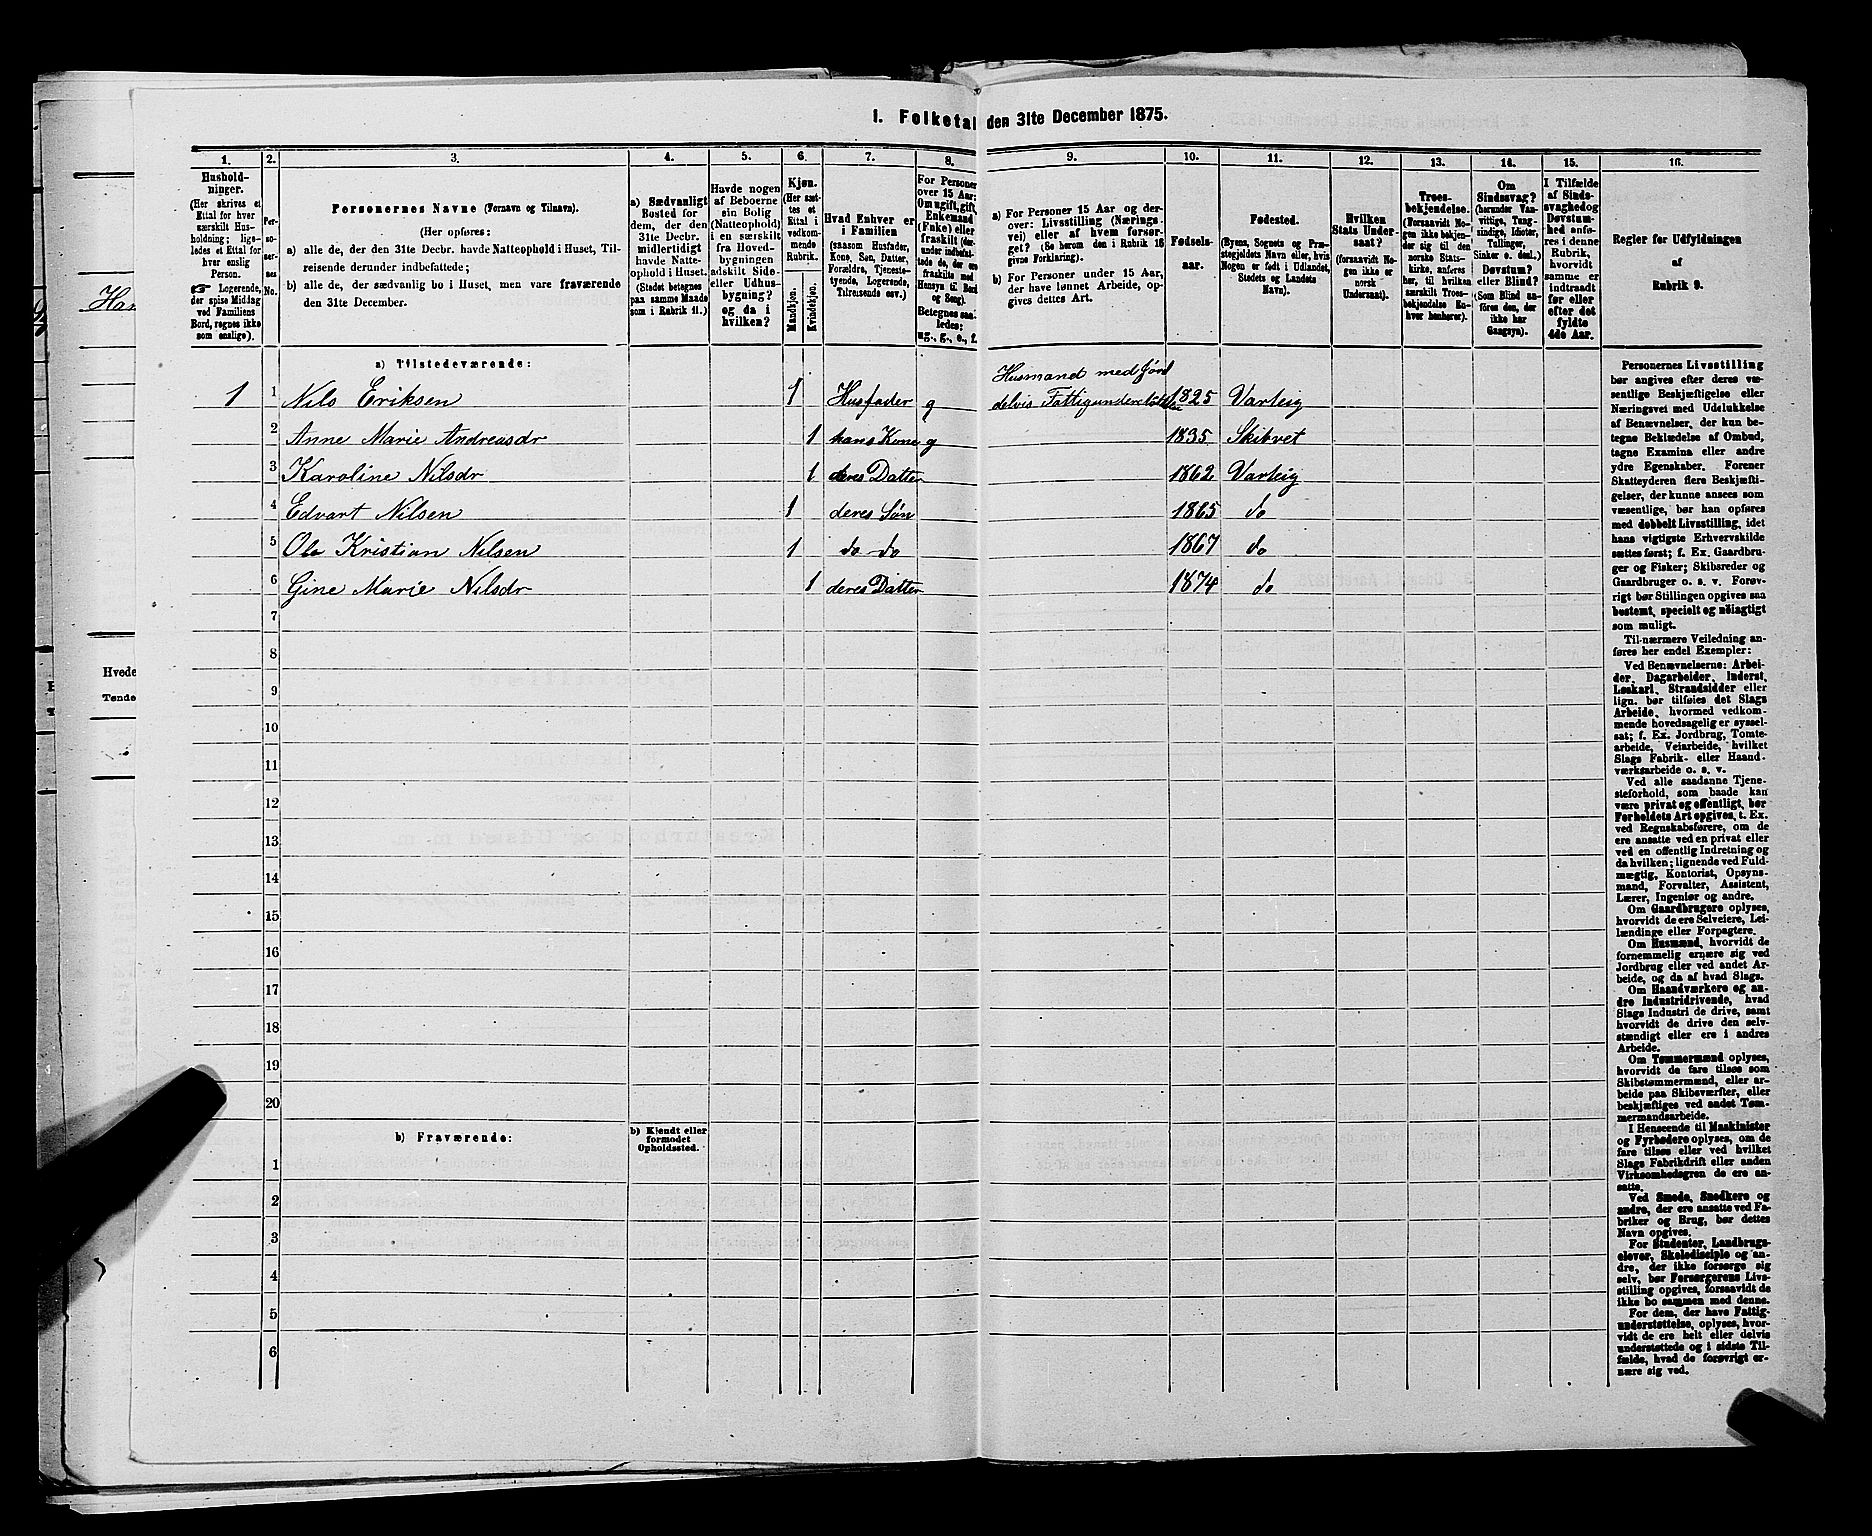 I. Folketal den 31te December 1875.
1.
Hushold-
ninger.
(Her skrives et
Ettal for hver
særskilt Hus-
holdning; lige-
ledes et Ettal for
hver enslig
Person.
Logerende,
der spise Middag
ved Familiens
Bord, regnes ikke
som enslige).
2.
Per-
so-
ner-
nes
No.
3.
Personernes Navne (Fornavn og Tilnavn).
(Her opføres:
a) alle de, der den 31te Decbr. havde Natteophold i Huset, Til-
reisende derunder indbefattede;
b) alle de, der sædvanlig bo i Huset, men vare fraværende
den 31te December.
4.
a) Sædvanligt
Bosted for
dem, der den
31te Decbr.
midlertidigt
havde Natte-
ophold i Huset.
(Stedet betegnes
paa samme Maade
som i Rubrik 11.)
5.
Havde nogen
af Beboerne
sin Bolig
(Natteophold)
i en særskilt
fra Hoved-
bygningen
adskilt Side-
eller Udhus-
bygning?
og da i
hvilken?
6.
Kjøn.
(Her sæt-
tes et
Ettal i
vedkom-
mende
Rubrik.
Mandkjøn.
Kvindekjøn.
7.
Hvad Enhver er
i Familien
(saasom Husfader,
Kone, Søn, Datter,
Forældre, Tjeneste-
tyende, Logerende,
Tilreisende osv.)
8.
For Personer
over 15 Aar:
Om ugift, gift,
Enkemand
(Enke) eller
fraskilt (der-
under indbefat-
tede de, der ere
fraskilte med
Hensyn til Bord
og Seng).
Betegnes saa-
ledes:
ug., g., e., f.
9.
a) For Personer 15 Aar og der-
over: Livsstilling (Nærings-
vei) eller af hvem forsør-
get? (Se herom den i Rubrik 16
givne Forklaring).
b) For Personer under 15 Aar,
der have lønnet Arbeide, op-
gives dettes Art.
10.
Fødsels-
aar.
11.
Fødested.
(Byens, Sognets og Præ-
stegjeldets Navn eller, hvis
Nogen er født i Udlandet,
Stedets og Landets
Navn).
12.
Hvilken
Stats Under-
saat?
(forsaavidt No-
gen ikke er
norsk
Undersaat).
13.
Troes-
bekjendelse.
(Forsaavidt No-
gen ikke bekjen-
der sig til den
norske Stats-
kirke, anføres
her, til hvilken
særskilt Troes-
bekjendelse En-
hver henhører).
14.
Om
Sindssvag?
(herunder Van-
vittige, Tung-
sindige, Idioter,
Tullinger,
Sinker o. desl.)
Døvstum?
eller Blind?
(Som Blind an-
føres den, der
ikke har
Gangsyn).
15.
I Tilfælde
af Sinds-
svaghed og
Døvstum-
hed anfø-
res i denne
Rubrik,
hvorvidt
samme er
indtraadt
før eller
efter det
fyldte
4de Aar.
16.
Regler for Udfyldningen
af
Rubrik 9.
a) Tilstedeværende:
Husmand med Jord
1 1 Nils Eriksen 1 Husfader g delvis Fattigunderstøttet 1825 Varteig
2 Anne Marie Andreasdr 1 hans Kone g 1835 Skibvet
3 Karoline Nilsdr 1 deres Datter 1862 Varteig
4 Edvart Nilsen 1 deres Søn 1865 do
5 Ole Kristian Nilsen 1 do do 1867 do
6 Gine Marie Nilsdr 1 deres Datter 1874 do
7
8
9
10
11
12
13
14
15
16
17
18
19
20
b) Fraværende:
b) Kjendt eller
formodet
Opholdssted.
1
2
3
4
5
6
Personernes Livsstilling
bør angives efter deres væ-
sentlige Beskjæftigelse eller
Næringsvei med Udelukkelse
af Benævnelser, der kun be-
tegne Beklædelse af Ombud,
tagne Examina eller andre
ydre Egenskaber. Forener
Skatteyderen flere Beskjæfti-
gelser, der kunne ansees som
væsentlige, bør han opføres
med dobbelt Livsstilling, idet
hans vigtigste Erhvervskilde
sættes først; f. Ex. Gaardbru-
ger og Fisker; Skibsreder og
Gaardbruger o. s. v. Forøv-
rigt bør Stillingen opgives saa
bestemt, specielt og nøiagtigt
som muligt.
Til nærmere Veiledning an-
føres her endel Exempler:
Ved Benævnelserne: Arbei-
der, Dagarbeider, Inderst,
Løskarl, Strandsidder eller
lign. bør tilføies det Slags
Arbeide, hvormed vedkom-
mende hovedsagelig er syssel-
sat; f. Ex. Jordbrug, Tomte-
arbeide, Veiarbeide, hvilket
Slags Fabrik- eller Haand-
værksarbeide o. s. v.
Ved alle saadanne Tjene-
steforhold, som baade kan
være privat og offentligt, bør
Forholdets Art opgives, t. Ex.
ved Regnskabsførere, om de
ere ansatte ved en privat eller
ved en offentlig Indretning og
da hvilken; lignende ved Fuld-
mægtig, Kontorist, Opsyns-
mand, Forvalter, Assistent,
Lærer, Ingeniør og andre.
Om Gaardbrugere oplyses,
hvorvidt de ere Selveiere, Lei-
lændinge eller Forpagtere.
Om Husmænd, hvorvidt de
fornemmelig ernære sig ved
Jordbrug eller ved andet Ar-
beide, og da af hvad Slags.
Om Haandværkere og an-
dre Industridrivende, hvad
Slags Industri de drive, samt
hvorvidt de drive den selv-
stændigt eller ere i andres
Arbeide.
Om Tømmermænd oplyses,
hvorvidt de fare tilsøs som
Skibstømmermænd, eller ar-
beide paa Skibsværfter, eller
beskjæftiges ved andet Tøm-
mermandsarbeide.
I Henseende til Maskinister
og Fyrbødere oplyses, om de
fare tilsøs eller ved hvilket
Slags Fabrikdrift eller anden
Virksomhedsgren de ere an-
satte.
Ved Smede, Snedkere og
andre, der ere ansatte ved Fa-
briker og Brug, bør dettes
Navn opgives.
For Studenter, Landbrugs-
elever, Skoledisciple og an-
dre, der ikke forsørge sig
selv, bør Forsørgerens Livs-
stilling opgives, forsaavidt de
ikke bo sammen med denne.
For dem, der have Fattig-
understøttelse, oplyses, hvor-
vidt de ere helt eller delvis
understøttede og i sidste Til-
fælde, hvad de forøvrigt er-
nære sig ved.
Hvede
Tønde